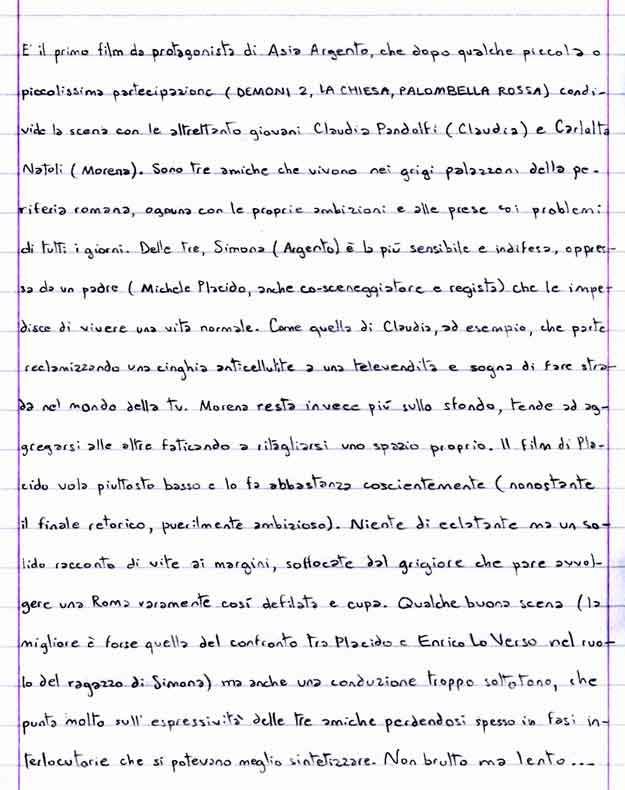 E' il primo film da protagonista di Asia Argento, che dopo qualche piccola o
piccolissima partecipazione (DEMONI 2, LA CHIESA, PALOMBELLA ROSSA) condi-
vide la scena con le altrettanto giovani Claudia Pandolfi (Claudia) e Carlotta
Natoli (Morena). Sono tre amiche che vivono nei grigi palazzoni della pe-
riferia romana, ognuna con le proprie ambizioni e alle prese coi problemi
di tutti i giorni. Delle tre, Simona (Argento) è la più sensibile e indifesa, oppres-
sa da un padre (Michele Placido, anche co-sceneggiatore e regista) che le impe-
disce di vivere una vita normale. Come quella di Claudia, ad esempio, che parte
reclamizzando una cinghia anticellulite a una televendita e sogna di fare stra-
da nel mondo della tv. Morena resta invece più sullo sfondo, tende ad ag-
gregarsi alle altre faticando a ritagliarsi uno spazio proprio. Il film di Pla-
cido vola piuttosto basso e lo fa abbastanza coscientemente (nonostante
il finale retorico, puerilmente ambizioso). Niente di eclatante ma un so-
lido racconto di vite ai margini, soffocate dal grigiore che pare avvol-
gere una Roma raramente così defilata e cupa. Qualche buona scena (la
migliore è forse quella del confronto tra Placido e Enrico Lo Verso nel ruo-
lo del ragazzo di Simona) ma anche una conduzione troppo sottotono, che
punta molto sull'espressività delle tre amiche perdendosi spesso in fasi in-
terlocutorie che si potevano meglio sintetizzare. Non brutto ma lento...